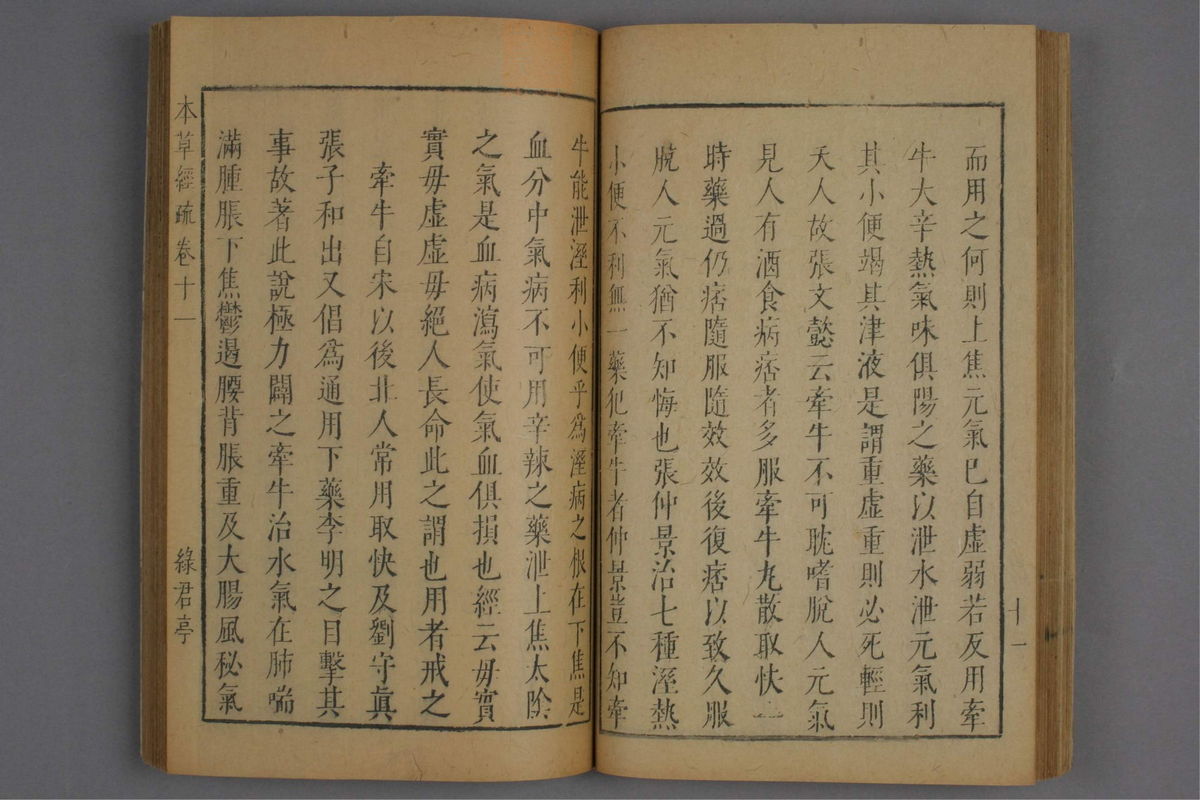 而用之何則上焦元氣巳自虛弱若反用牽
牛大辛熱氣味俱陽之藥以泄水泄元氣利
其小便竭其津液是謂重虛重則必死輕則
夭人故張文懿云牽牛不可耽嗜脫人元氣
見人有酒食病痞者多服牽牛丸散取快一
時藥過仍痞隨服隨效效後復痞以致久服
脫人元氣猶不知悔也張仲景治七種溼熱
小便不利無一藥犯牽牛者仲景豈不知牽
十一
牛能泄溼利小便乎爲溼病之根在下焦是
血分中氣病不可用辛辣之藥泄上焦太陰
之氣是血病瀉氣使氣血俱損也經云毋實
實毋虛虛毋絕人長命此之謂也用者戒之
牽牛自宋以後北人常用取快及劉守眞
張子和出又倡爲通用下藥李明之目擊其
事故著此說極力闢之牽牛治水氣在肺喘
滿腫脹下焦鬱遏腰背脹重及大腸風秘氣
本草經疏 卷十一
綠君亭